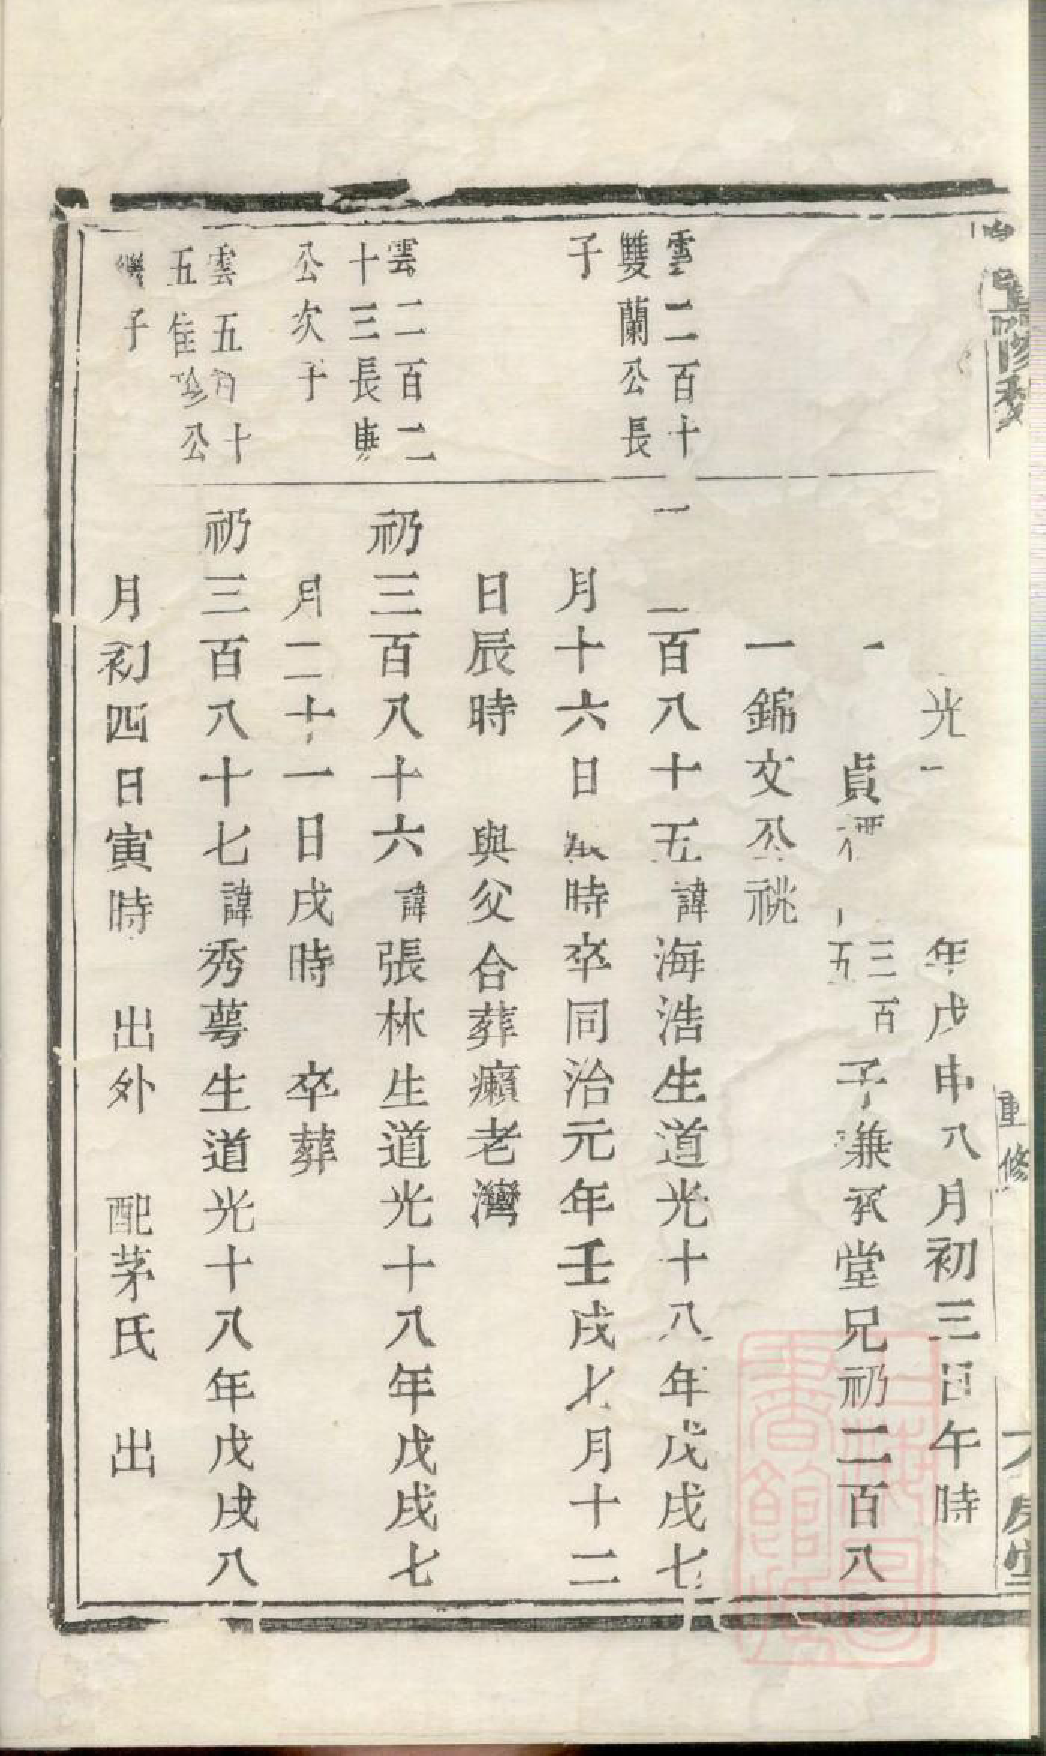 重修
光
年戊申八月初三日午時
貞
三百
五
子兼承堂兄礽二百八
一錦文公祧
雲二百十
雙蘭公長
子
百八十五諱海浩生道光十八年戊戌七
月十六日
時卒同治元年壬戌七月十二
日辰時 與父合葬癩老灣
雲二百二
十三長庚
公次子
礽三百八十六諱張林生道光十八年戊戌七
月二十一日戌時 卒葬
雲五百十
五佳珍公
子
礽三百八十七諱秀萼生道光十八年戊戌八
月初四日寅時 出外 配茅氏 出